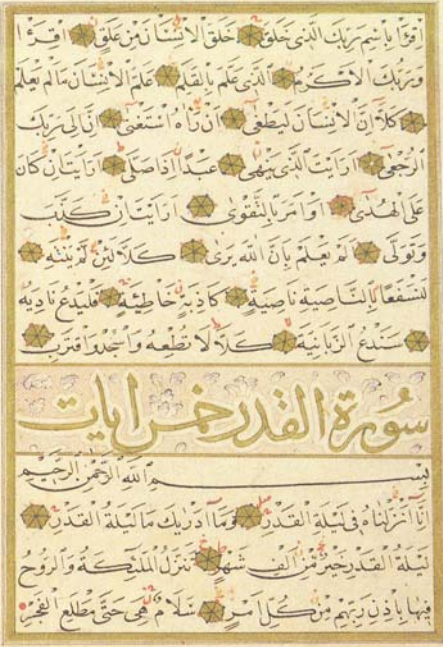 اِقْرَأْ بِاسْمِ رَبِّكَ الَّذِى خَلَقَ خَلَقَ الْاِنْسَانَ مِنْ عَلَقٍ اِقْرَأْ
وَرَبُّكَ الْاَكْرَمُ اَلَّذِى عَلَّمَ بِالْقَلَمِ عَلَّمَ الْاِنْسَانَ مَا لَمْ يَعْلَمْ
كَلَّا اِنَّ الْاِنْسَانَ لَيَطْغٰى اَنْ رَاٰهُ اسْتَغْنٰى اِنَّ اِلٰى رَبِّكَ
الرُّجْعٰى اَرَاَيْتَ الَّذِى يَنْهٰى عَبْدًا اِذَا صَلّٰى اَرَاَيْتَ اِنْ كَانَ
عَلَى الْهُدٰى اَوْ اَمَرَ بِالتَّقْوٰى اَرَاَيْتَ اِنْ كَذَّبَ
وَتَوَلّٰى اَلَمْ يَعْلَمْ بِاَنَّ اللّٰهَ يَرٰى كَلَّا لَئِنْ لَمْ يَنْتَهِ
لَنَسْفَعًا بِالنَّاصِيَةِ نَاصِيَةٍ كَاذِبَةٍ خَاطِئَةٍ فَلْيَدْعُ نَادِيَهُ
سَنَدْعُ الزَّبَانِيَةَ كَلَّا لَا تُطِعْهُ وَاسْجُدْ وَاقْتَرِبْ
سُورَةُ الْقَدْرِ خَمْسُ اٰيَاتٍ
بِسْمِ اللّٰهِ الرَّحْمٰنِ الرَّحِيمِ
اِنَّا اَنْزَلْنَاهُ فِى لَيْلَةِ الْقَدْرِ وَمَا اَدْرٰيكَ مَا لَيْلَةُ الْقَدْرِ
لَيْلَةُ الْقَدْرِ خَيْرٌ مِنْ اَلْفِ شَهْرٍ تَنَزَّلُ الْمَلٰئِكَةُ وَالرُّوحُ
فِيهَا بِاِذْنِ رَبِّهِمْ مِنْ كُلِّ اَمْرٍ سَلَامٌ هِىَ حَتّٰى مَطْلَعِ الْفَجْرِ